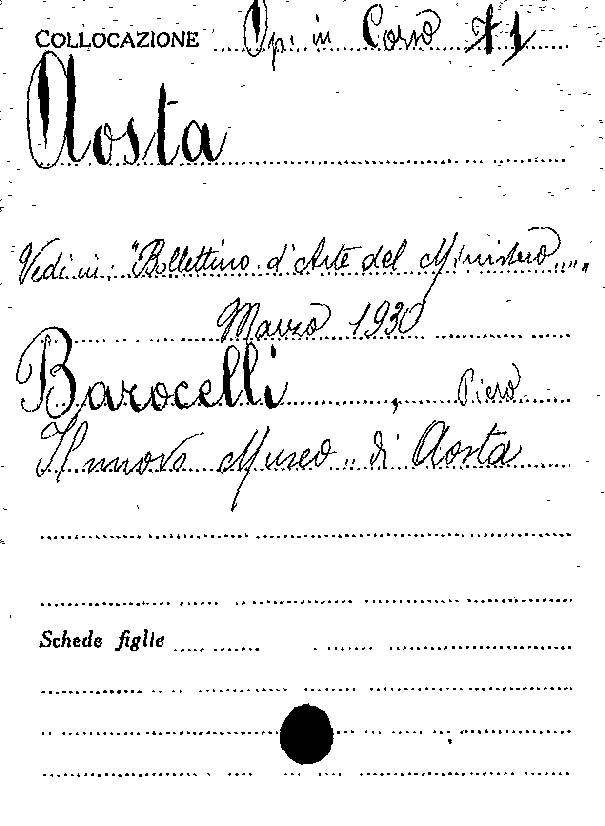 COLLOCAZIONE Op. in Corso 71
Aosta
Vedi in: "Bollettino d'Arte del Ministero„
Marzo 1930
Barocelli, Piero
Il nuovo Museo di Aosta
Schede figlie